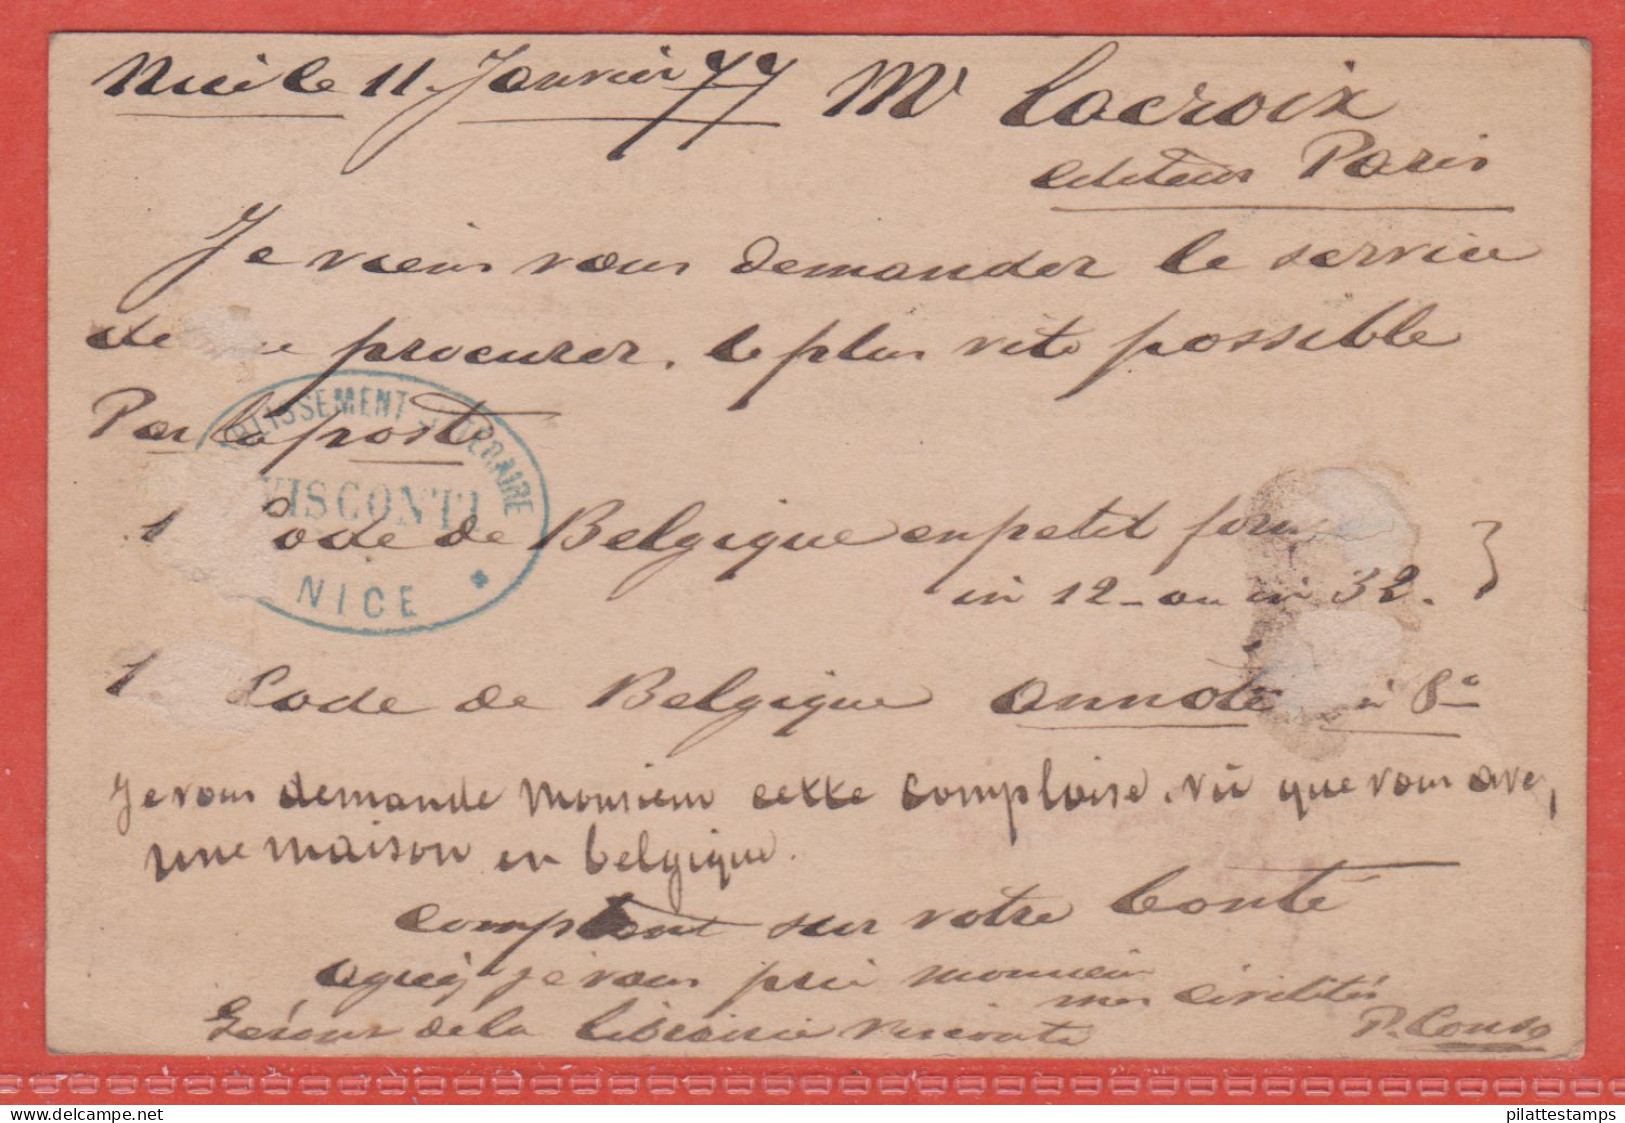 Nice le 11 Janvier 77 Mr Lacroix
editeur Paris
Je viens vous demander le service
de me procurer, le plus vite possible
Par la poste
ETABLISSEMENT LITTERAIRE
VISCONTI
NICE
1 Code de Belgique en petit form
in 12 - ou in 32.
1 Code de Belgique annoté in 8o
Je vous demande Monsieur cette complaise. vü que vous avez,
une maison en belgique.
comptant sur votre bonté
agréez je vous prie monsieur
mes civilités
Gérant de la Librairie Visconti
P.
pilattestamps